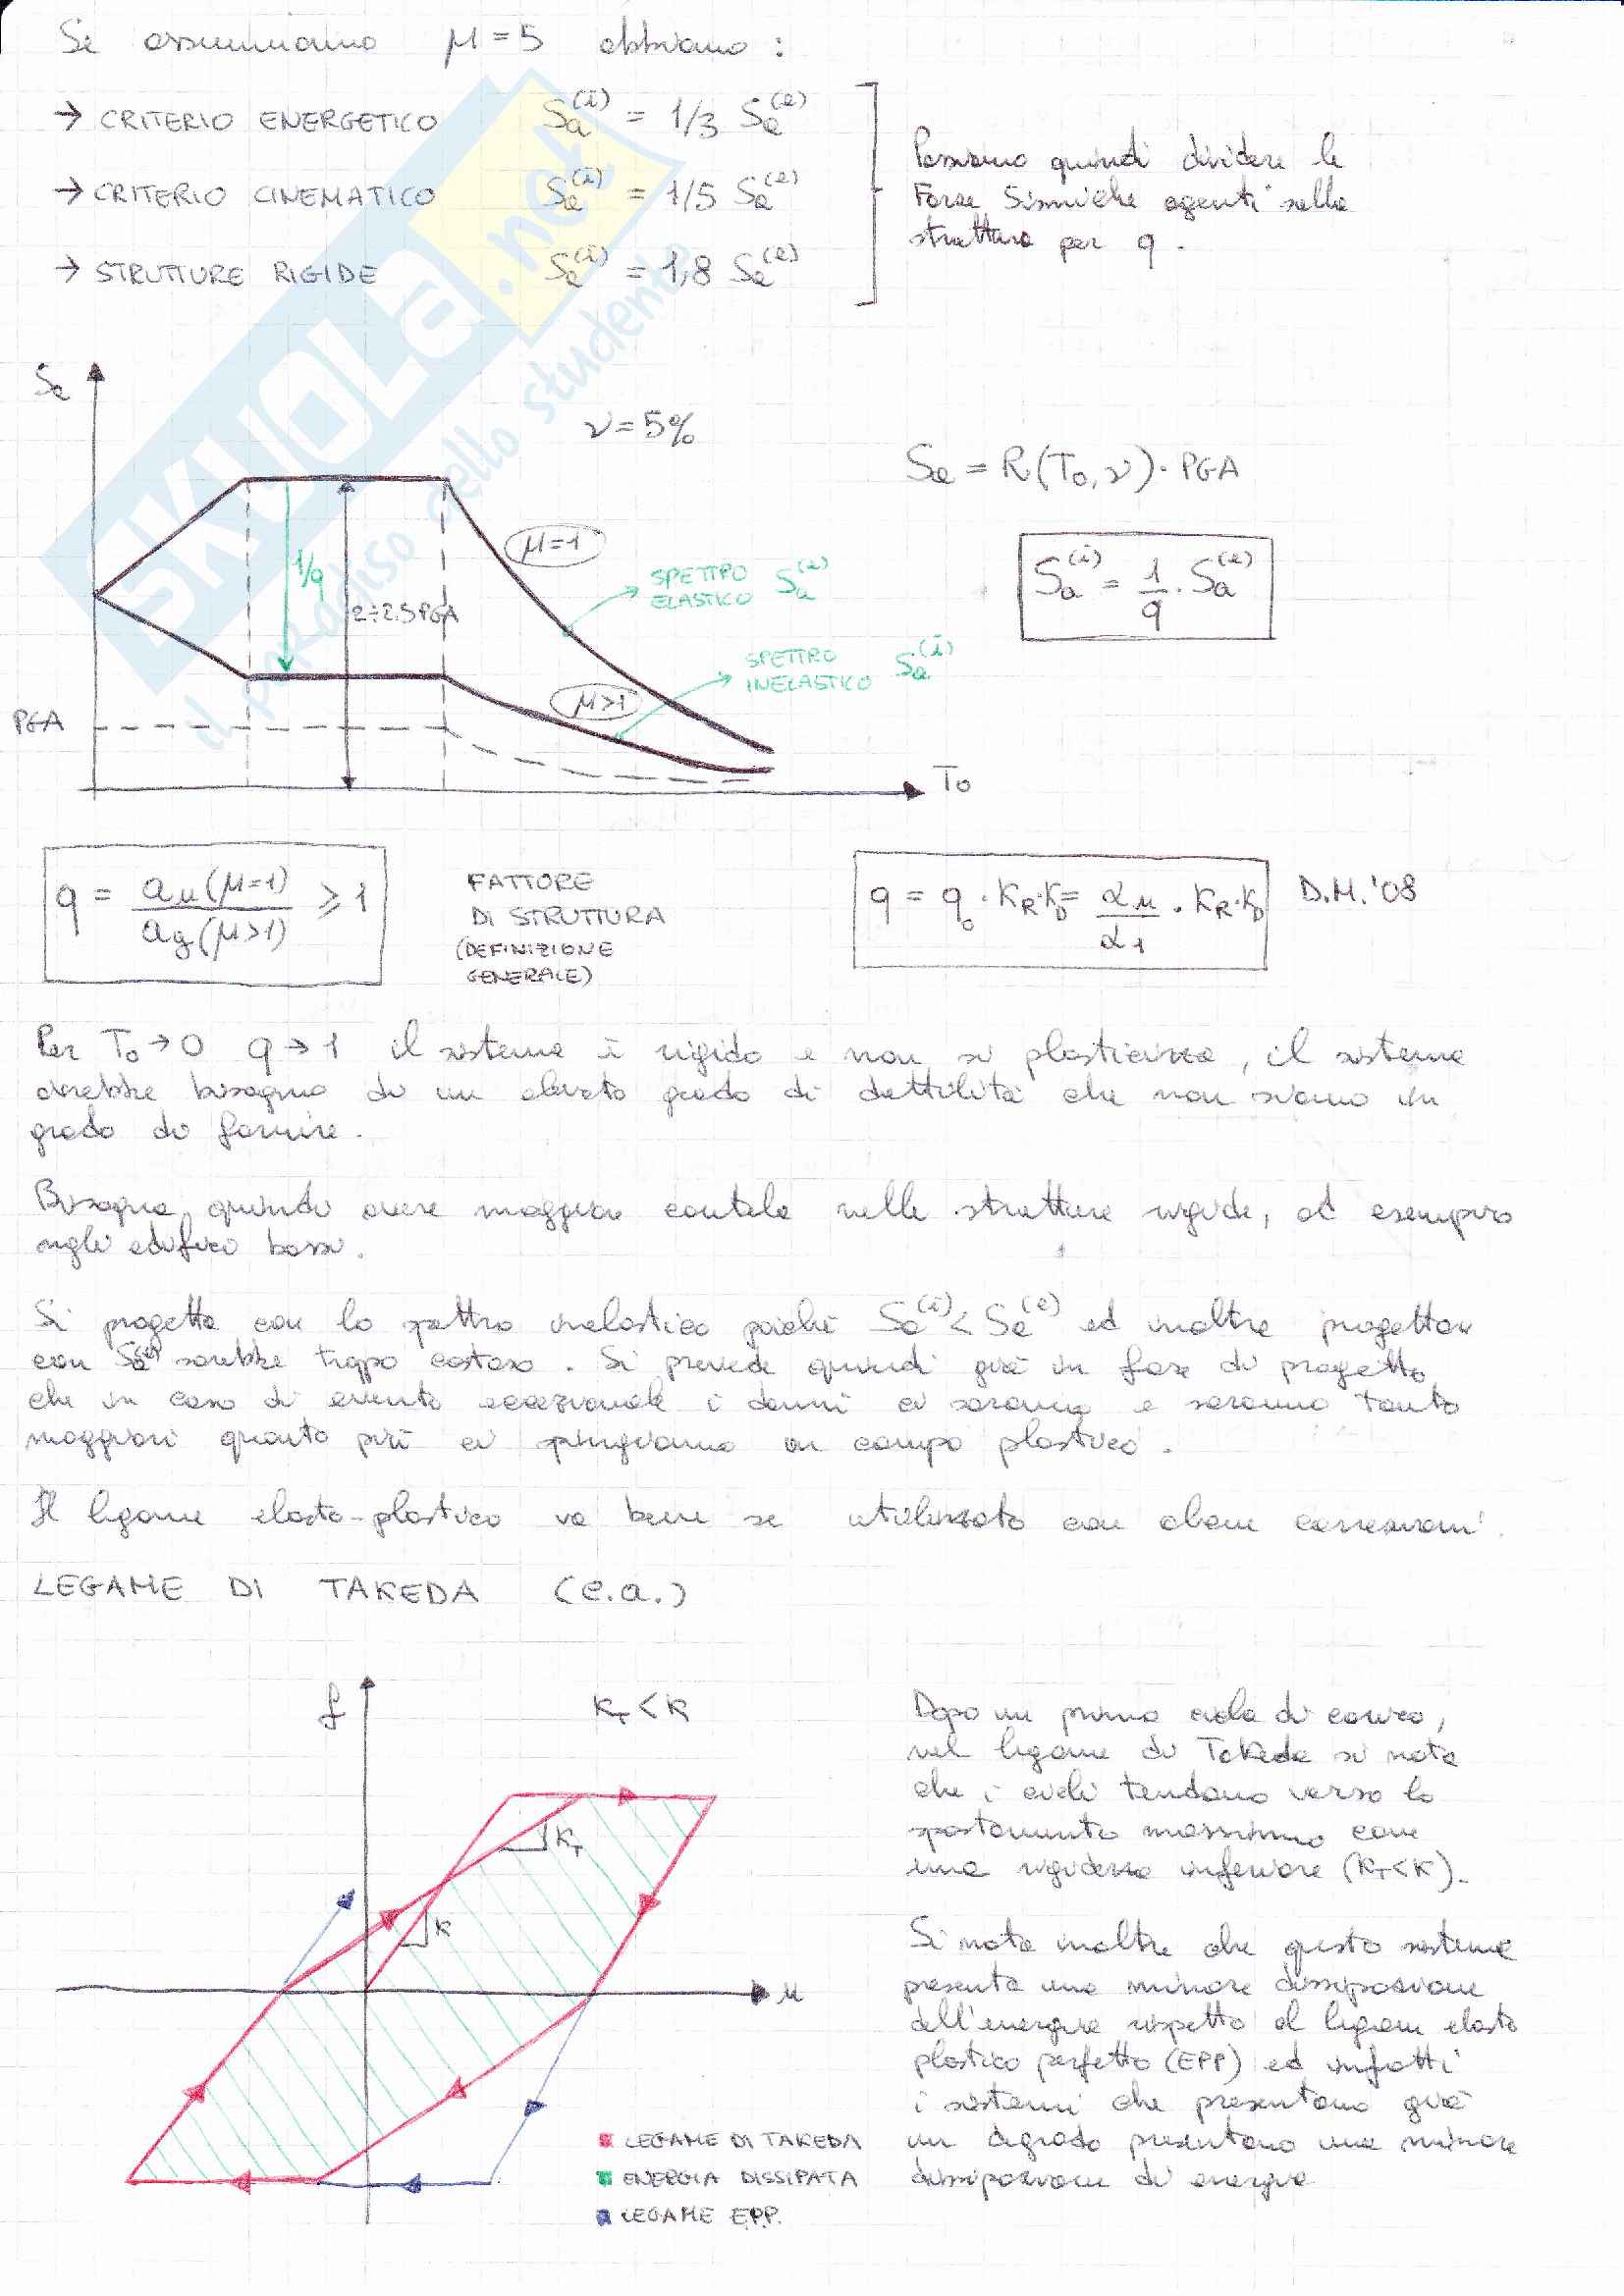 Se assumiamo μ = 5 abbiamo :
→ CRITERIO ENERGETICO Sa(i) = 1/3 Sa(e)
→ CRITERIO CINEMATICO Sa(i) = 1/5 Sa(e)
→ STRUTTURE RIGIDE Sa(i) = 1,8 Sa(e)
Possiamo quindi dividere le
Forze Sismiche agenti sulla
struttura per q.
SKUOLA.net
il paradiso dello studente
Sa
ν = 5%
μ=1
1/q
2÷2.5PGA
SPETTRO
ELASTICO Sa(e)
SPETTRO
INELASTICO Sa(i)
μ>1
PGA
T0
Sa = R(T0, ν) · PGA
Sa(i) = 1/q · Sa(e)
q = au(μ=1) / ag(μ>1) ⩾ 1
FATTORE
DI STRUTTURA
(DEFINIZIONE
GENERALE)
q = q0 · KR · KD = αu/α1 · KR · KD D.M. '08
Per T0 → 0 q → 1 il sistema è rigido e non si plasticizza, il sistema
avrebbe bisogno di un elevato grado di duttilità che non siamo in
grado di fornire.
Bisogna quindi avere maggior cautela nelle strutture rigide, ad esempio
negli edifici bassi.
Si progetta con lo spettro inelastico poiché Sa(i) < Sa(e) ed inoltre progettare
con Sa(e) sarebbe troppo costoso. Si prevede quindi già in fase di progetto
che in caso di evento eccezionale i danni ci saranno e saranno tanto
maggiori quanto più ci spingiamo in campo plastico.
Il legame elasto-plastico va bene se utilizzato con alcune correzioni.
LEGAME DI TAKEDA (c.a.)
f
KT < K
KT
K
u
LEGAME DI TAKEDA
ENERGIA DISSIPATA
LEGAME E.P.P.
Dopo un primo ciclo di carico,
nel legame di Takeda si nota
che i cicli tendono verso lo
spostamento massimo con
una rigidezza inferiore (KT<K).
Si nota inoltre che questo sistema
presenta una minore dissipazione
dell'energia rispetto al legame elasto
plastico perfetto (EPP) ed infatti
i sistemi che presentano già
un degrado presentano una minore
dissipazione di energia